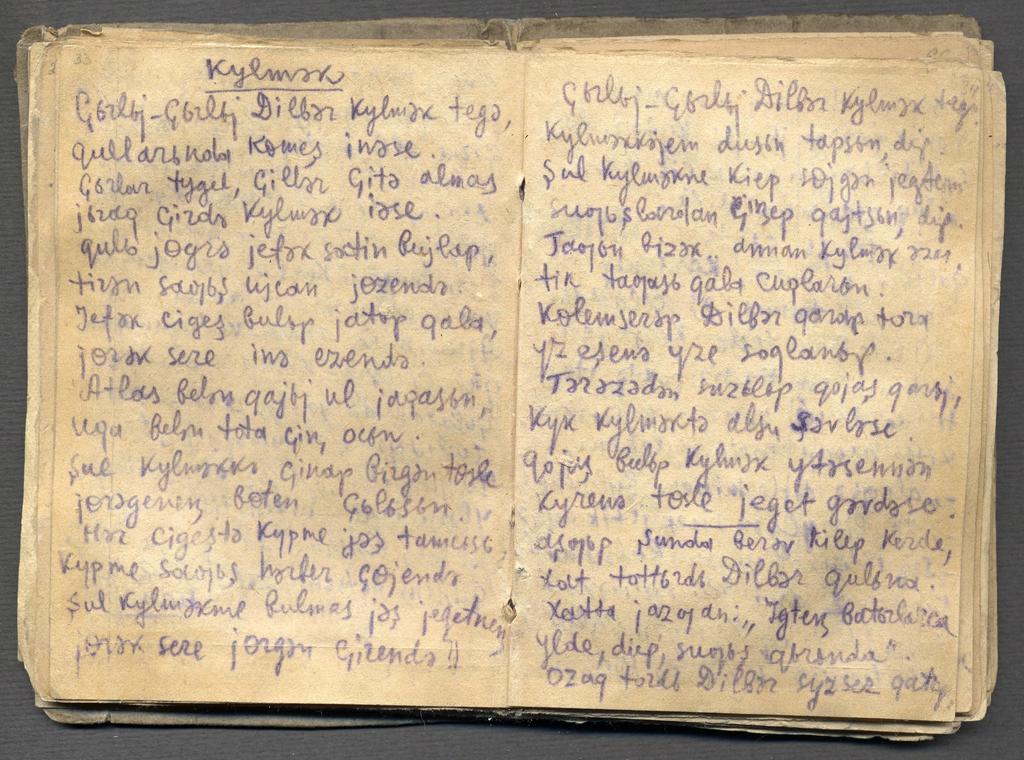 Kylmәk
Çьrlьj-Çьrlьj Dilbәr kylmәk tegә,
qullarьnda kɵmeş inәse.
Çьrlar tygel, çillәr çitә almas
jьraq çirdә kylmәk iәse.
qulь jɵgrә jefәk sәtin bujlap,
tirәn saƣьş ujcan jɵzendә.
Jefәk cigeş bulьp jatьp qala,
jɵrәk sere inә ezendә.
Atlas belәn qajьj ul jaqasьn,
uqa belәn tota çiŋ ocьn.
Şul kylmәkkә çinap birgәn tɵsle
jɵrәgeneŋ bɵten çьlьsьn.
Hәr cigeştә kypme jәş tamcьsь,
kypme saƣьş hәrber çɵjendә
Şul kylmәkne bulmas jәş jegetneŋ
jɵrәk sere jɵrgәn çirendә!!
Çьrlьj-Çьrlьj Dilbәr kylmәk tegә.
kylmәkkәjem dusьn tapsьn, dip.
Şul kylmәkne kiep sɵjgәn jegtem
suƣьşlardan çiŋep qajtsьn, dip.
Taƣьn bizәk.. annan kylmәk әzer,
tik taƣasь qala cuqlarьn.
Kɵlemserәp Dilbәr qarap tora
yz eşenә yze soqlanьp.
Tәrәzәdәn suzьlьp qojaş qarьj,
kyk kylmәktә alsu şәvlәse.
qojaş bulьp kylmәk ytәsennәn
kyrenә tɵsle jeget gәvdәse.
aşƣьp şunda berәv kilep kerde,
xat tottьrdь Dilbәr qulьna.
Xatta jazƣan: „Igteŋ batьrlarca
ylde, diep, suƣьş qьrьnda".
ozaq tordь Dilbәr syzsez qatьp,